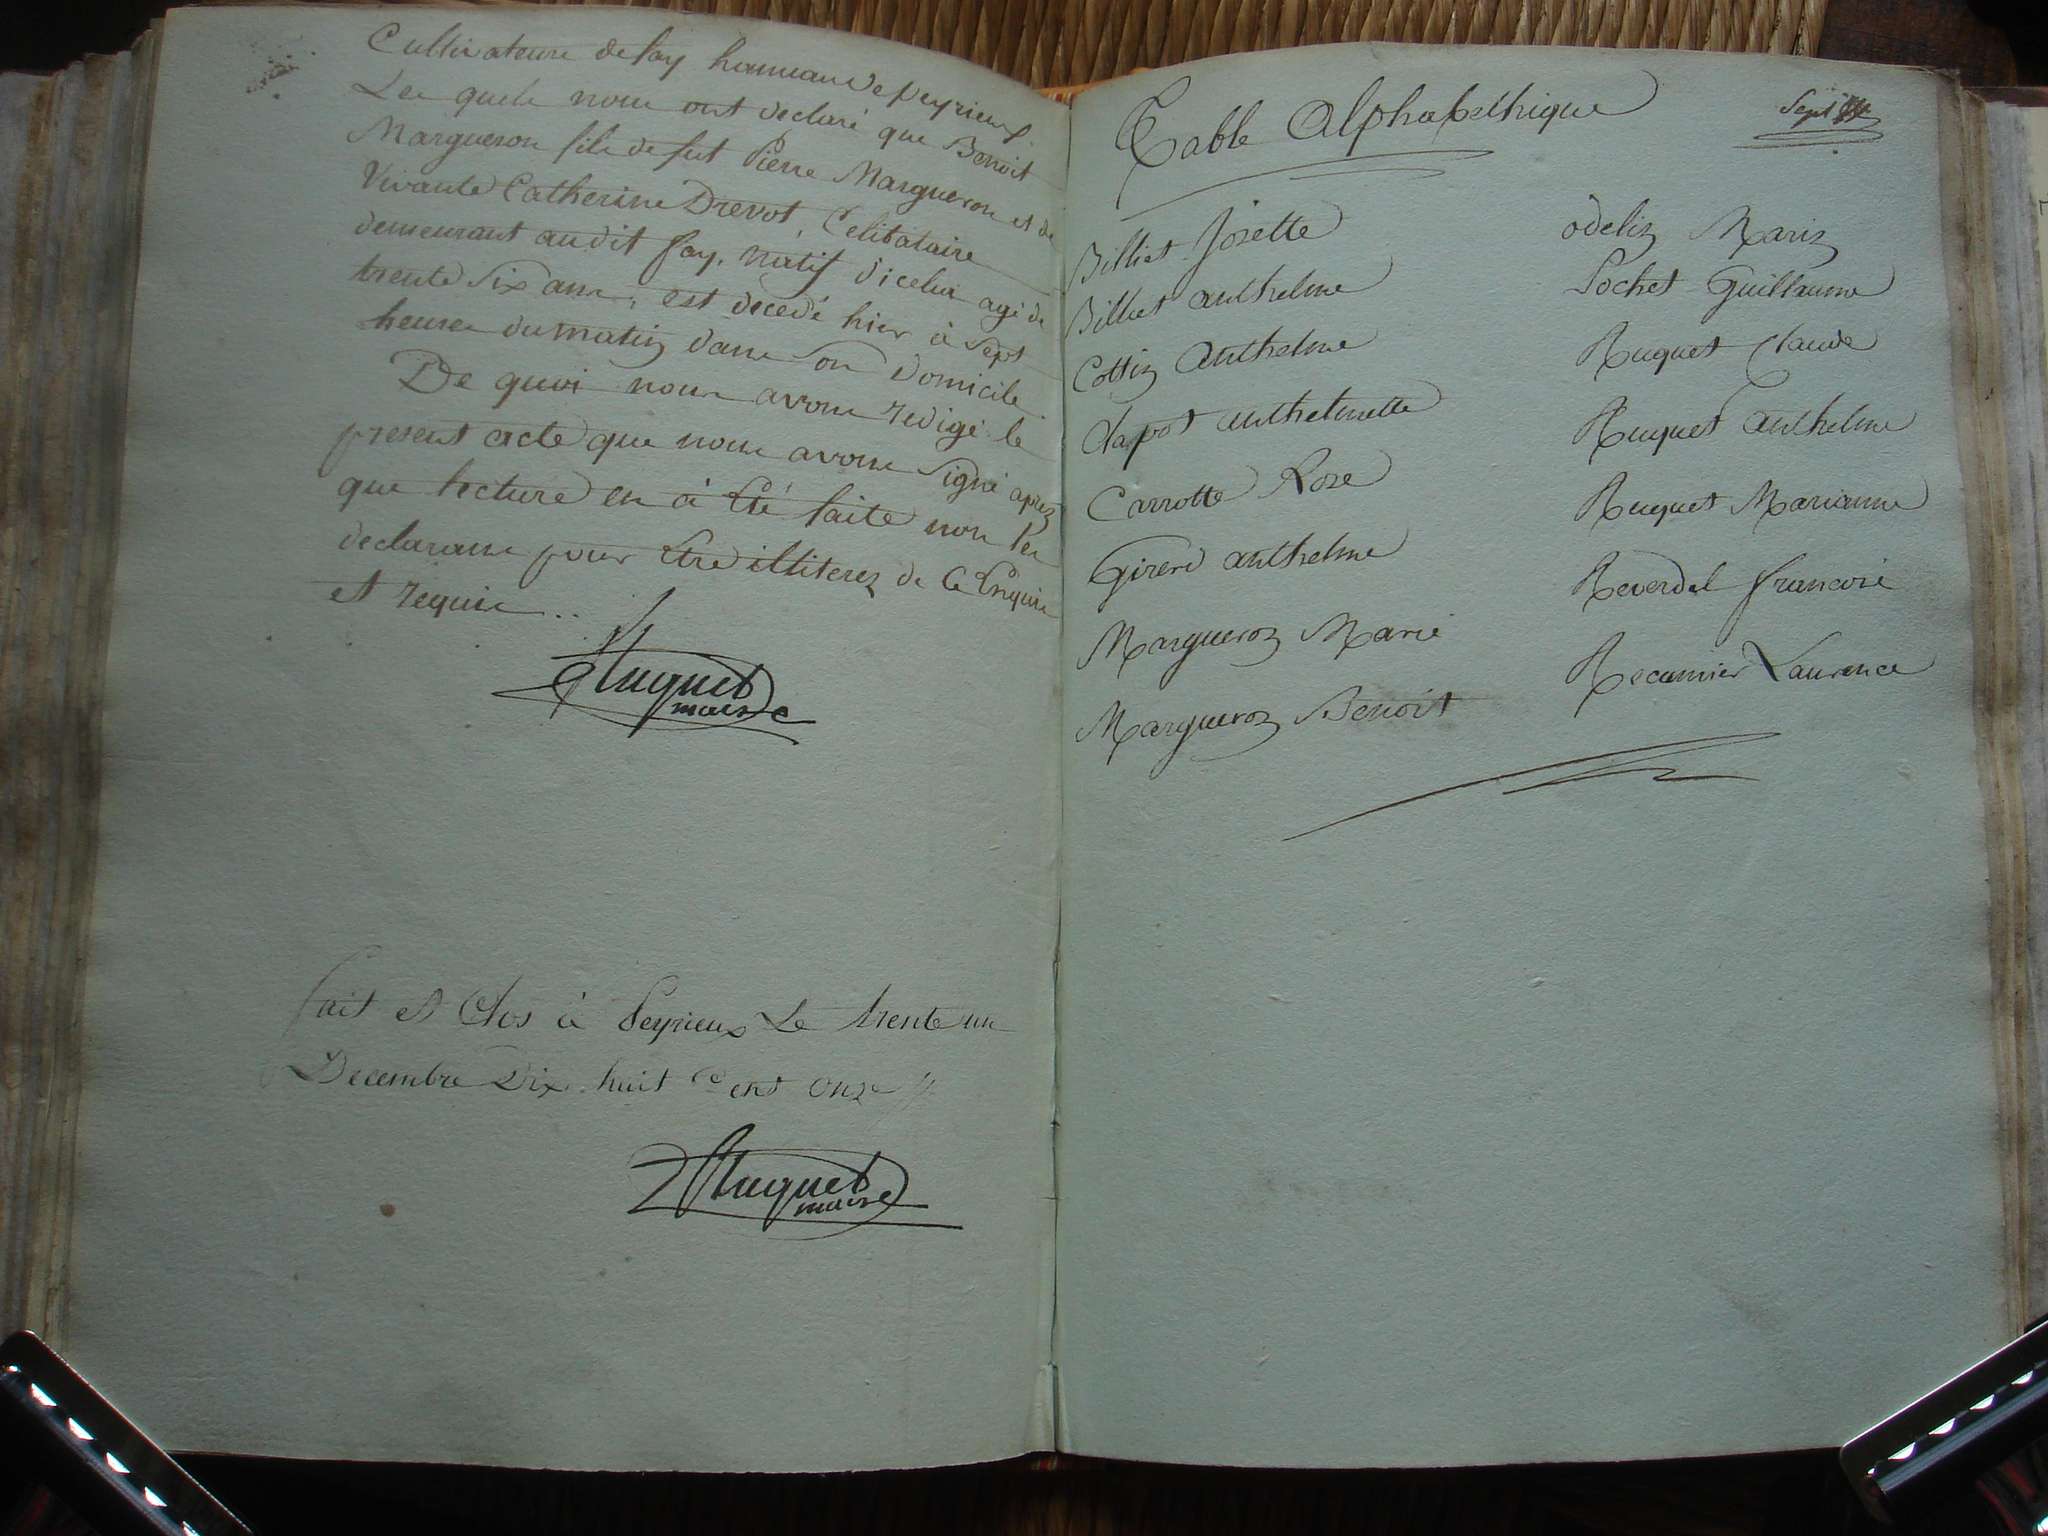 Cultivateurs de fay hameau de peyrieux.
Les quels nous ont declaré que Benoit
Margueron fils de fut Pierre Margueron et de
Vivante Catherine Drevot, Celibataire
demeurant audit fay, natif d'icelui agé de
trente Six ans, est decedé hier à Sept
heures du matin dans son Domicile.
De quoi nous avons redigé le
present acte que nous avons Signé après
que lecture en à Eté faite non les
declarans pour Etre illiterez de Ce Enquis
et requis ..
Huguet
maire
fait et Clos à Peyrieux Le trente un
Decembre Dix huit Cent Onze //
Huguet
maire
Table Alphabethique
Sept
Billiet Josette
Billiet anthelme
Cottin Anthelme
Clapot anthelmette
Carrotte Rose
Girerd anthelme
Margueron Marie
Margueron Benoit
odelin Marin
Pochet Guillaume
Huguet Claude
Huguet Anthelme
Huguet Marianne
Reverdel francois
Recamier Laurence